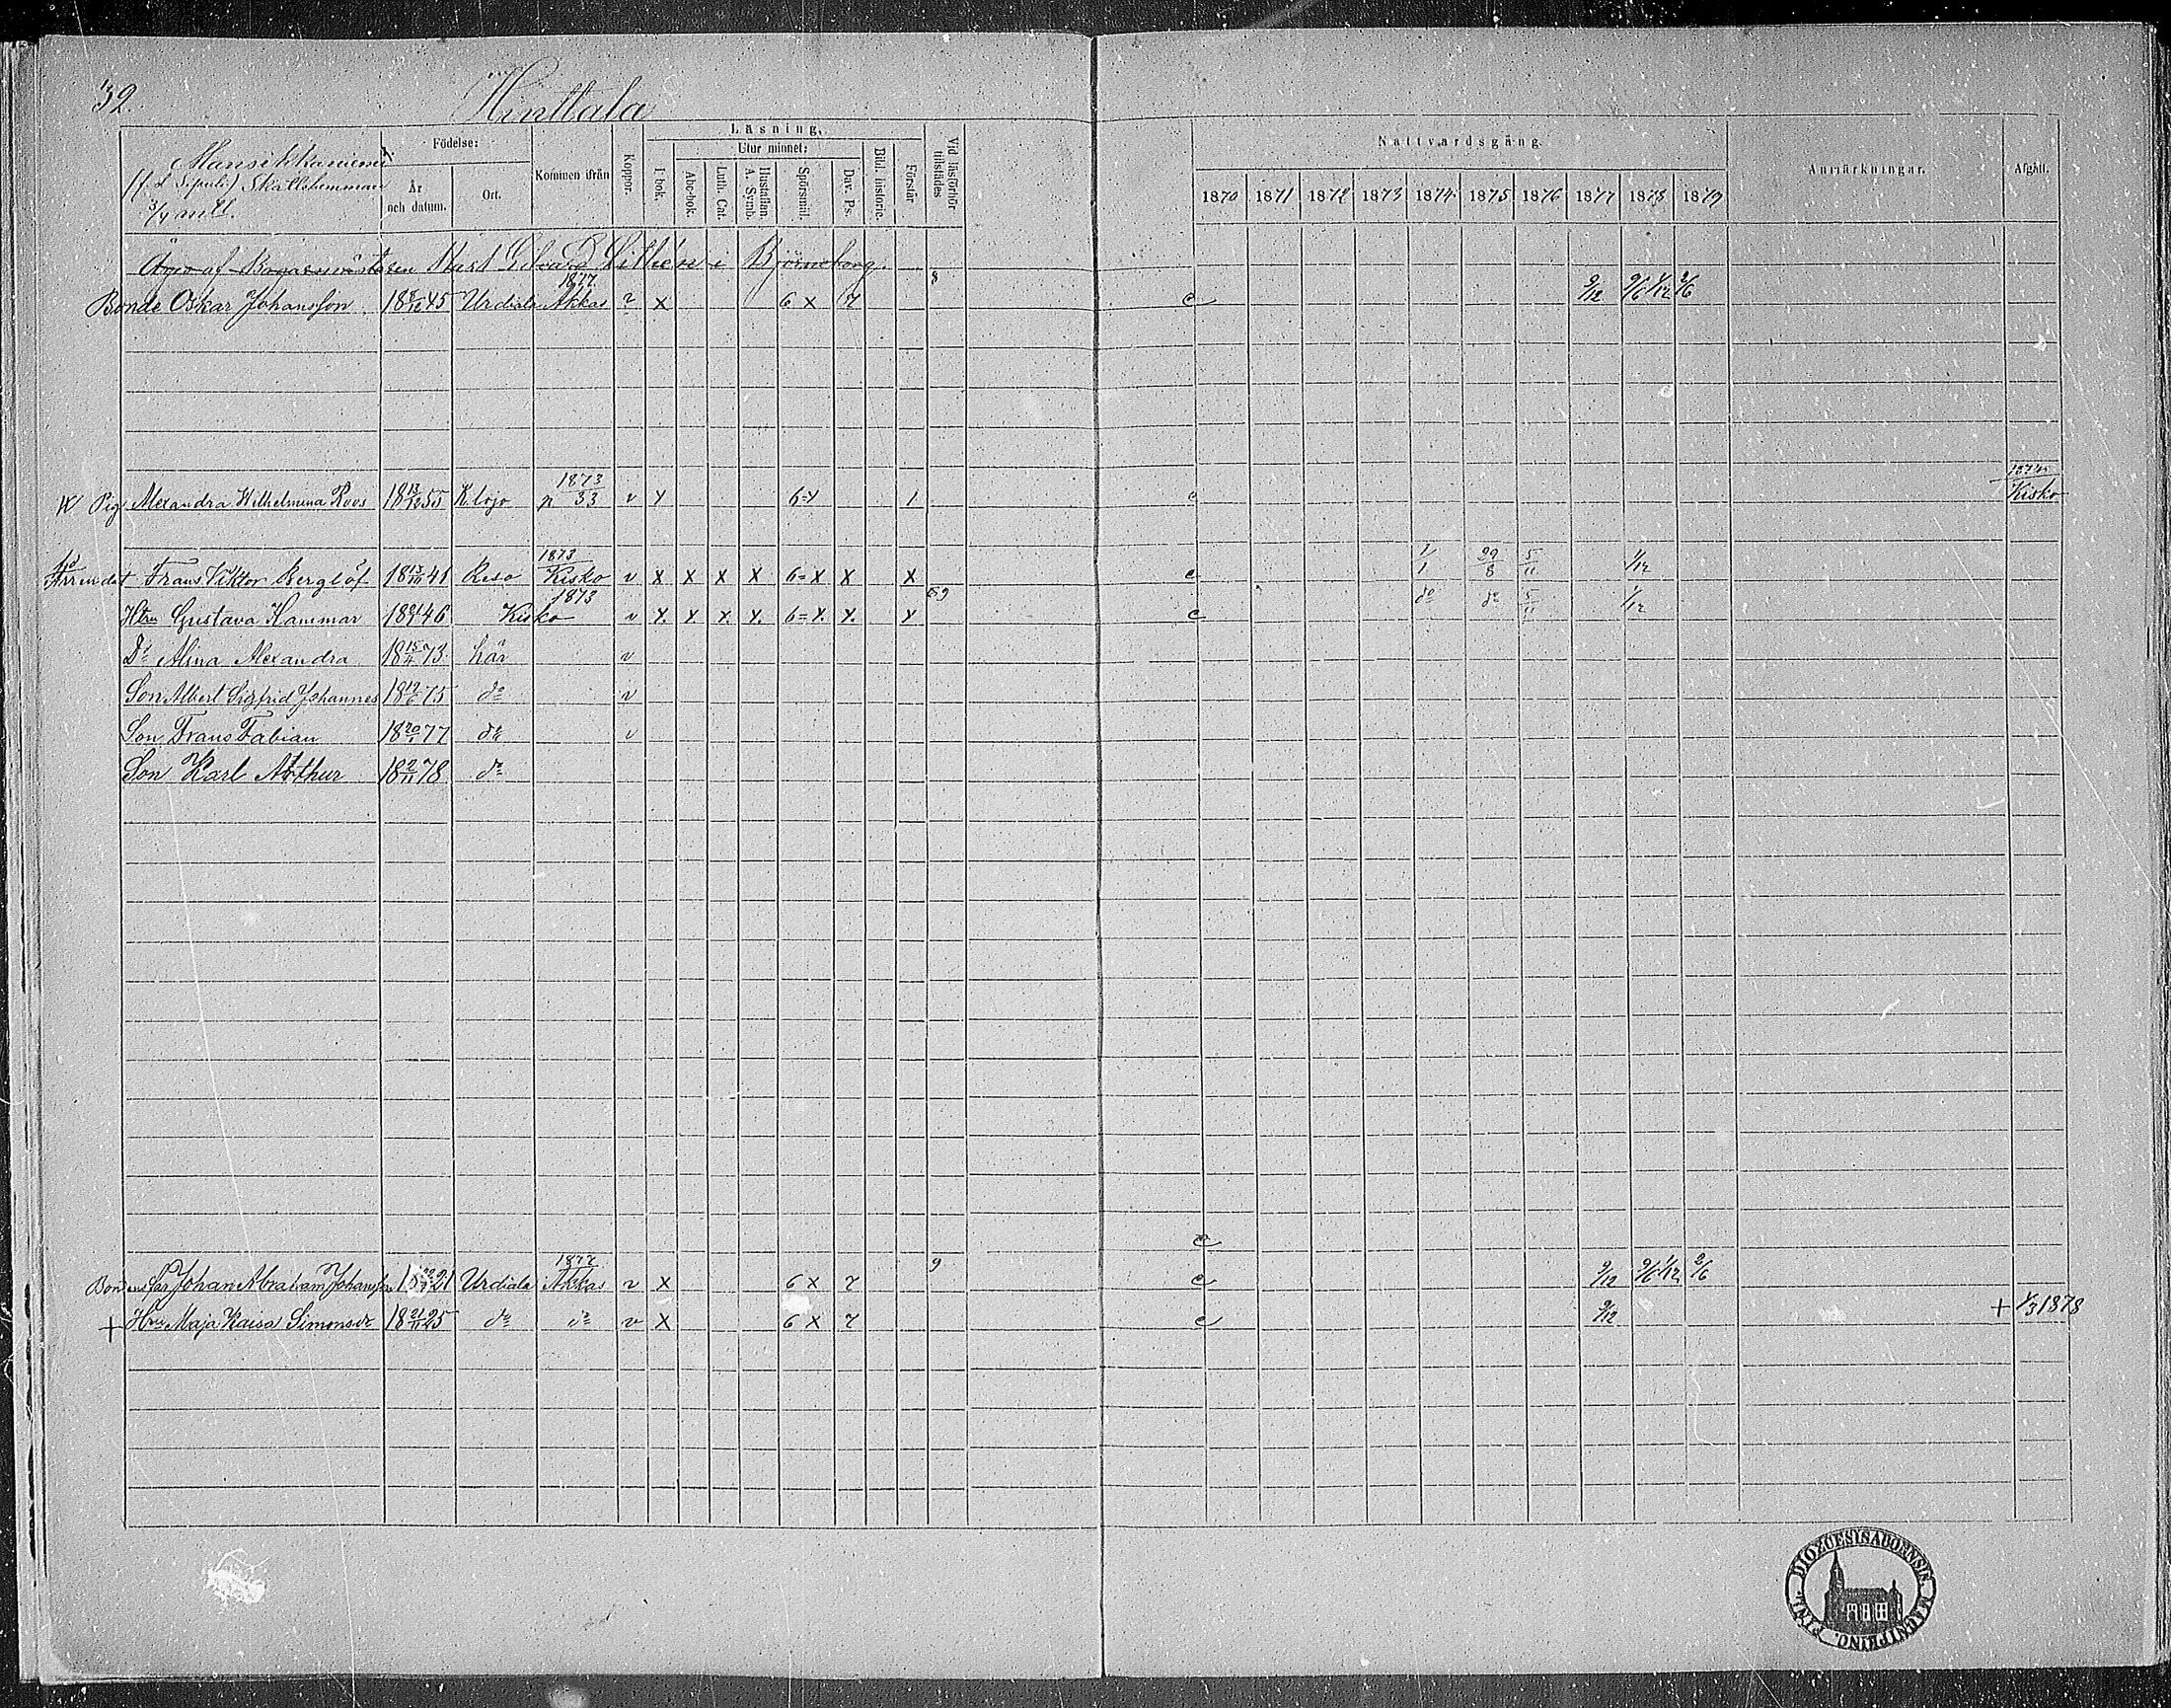 32.
Hinttala
Mansikkaniemi
(f. d. Sipuli) Skattehemman
3/4 mtl.
Födelse:
År och datum.
Ort.
Kommen ifrån
Koppor.
Läsning.
I bok.
Utur minnet:
Abc-bok.
Luth. Cat.
Hustaflan. A. Symb.
Spörsmål.
Dav. Ps.
Bibl. historie.
Förstår
Vid läsförhör tillstädes
Nattvardsgång.
1870 1871 1872 1873 1874 1875 1876 1877 1878 1879
Anmärkningar.
Afgått.
Äges af Bagaremästaren Karl Edvard Lithén i Björneborg.
1877 8
Bonde Oskar Johansson 18 45 Urdiala Akkas v x 6 x 7 c 9/12 9/6 1/12 2/6
1873
Pig. Alexandra Wilhelmina Roos 18 13/12 55 K. lojo p 33 v x 6=x 1 c Kisko
1873
Arrendat. Frans Viktor Berglöf 18 13/10 41 Reso Kisko v x x x x 6=x x x c 1/1 29/8 5/11 1/12
1873 69
Htru Gustava Hammar 18 46 Kisko v x x x x 6=x x x c do do 5/11 1/12
Dr Alma Alexandra 18 15/4 73 här v
Son Albert Sigfrid Johannes 18 19/6 75 do v
Son Frans Fabian 18 20/1 77 do v
Son Karl Arthur 18 2/11 78 do
c
1877 9
Bondens far Johan Abraham Johansson 18 21 Urdiala Akkas v x 6 x 7 c 9/12 9/6 1/12 2/6
+ Hru Maja Kaisa Simonsdr 18 21/11 25 do do v x 6 x 7 c 9/12 + 1/3 1878
DIOZOESISABOENSIS MAGNI PRINC. FINL.